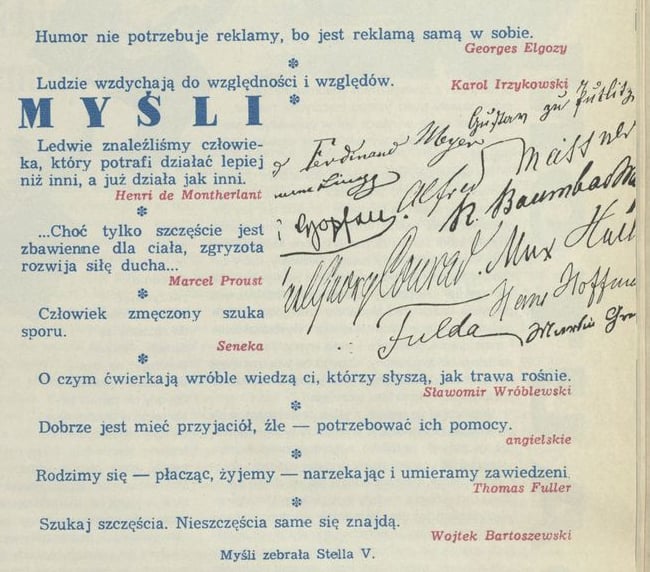 Humor nie potrzebuje reklamy, bo jest reklamą samą w sobie.
Georges Elgozy
*
Ludzie wzdychają do względności i względów.
Karol Irzykowski
*
MYŚLI
Ledwie znaleźliśmy człowie-
ka, który potrafi działać lepiej
niż inni, a już działa jak inni.
Henri de Montherlant
*
...Choć tylko szczęście jest
zbawienne dla ciała, zgryzota
rozwija siłę ducha...
Marcel Proust
*
Człowiek zmęczony szuka
sporu.
Seneka
*
Gustav zu Putlitz
Ferdinand Meyer
Alfred
R. Baumbach
Georg Conrad. Max
Hans Hoffm
Fulda
Martin
O czym ćwierkają wróble wiedzą ci, którzy słyszą, jak trawa rośnie.
Sławomir Wróblewski
*
Dobrze jest mieć przyjaciół, źle — potrzebować ich pomocy.
angielskie
*
Rodzimy się — płacząc, żyjemy — narzekając i umieramy zawiedzeni.
Thomas Fuller
*
Szukaj szczęścia. Nieszczęścia same się znajdą.
Wojtek Bartoszewski
Myśli zebrała Stella V.